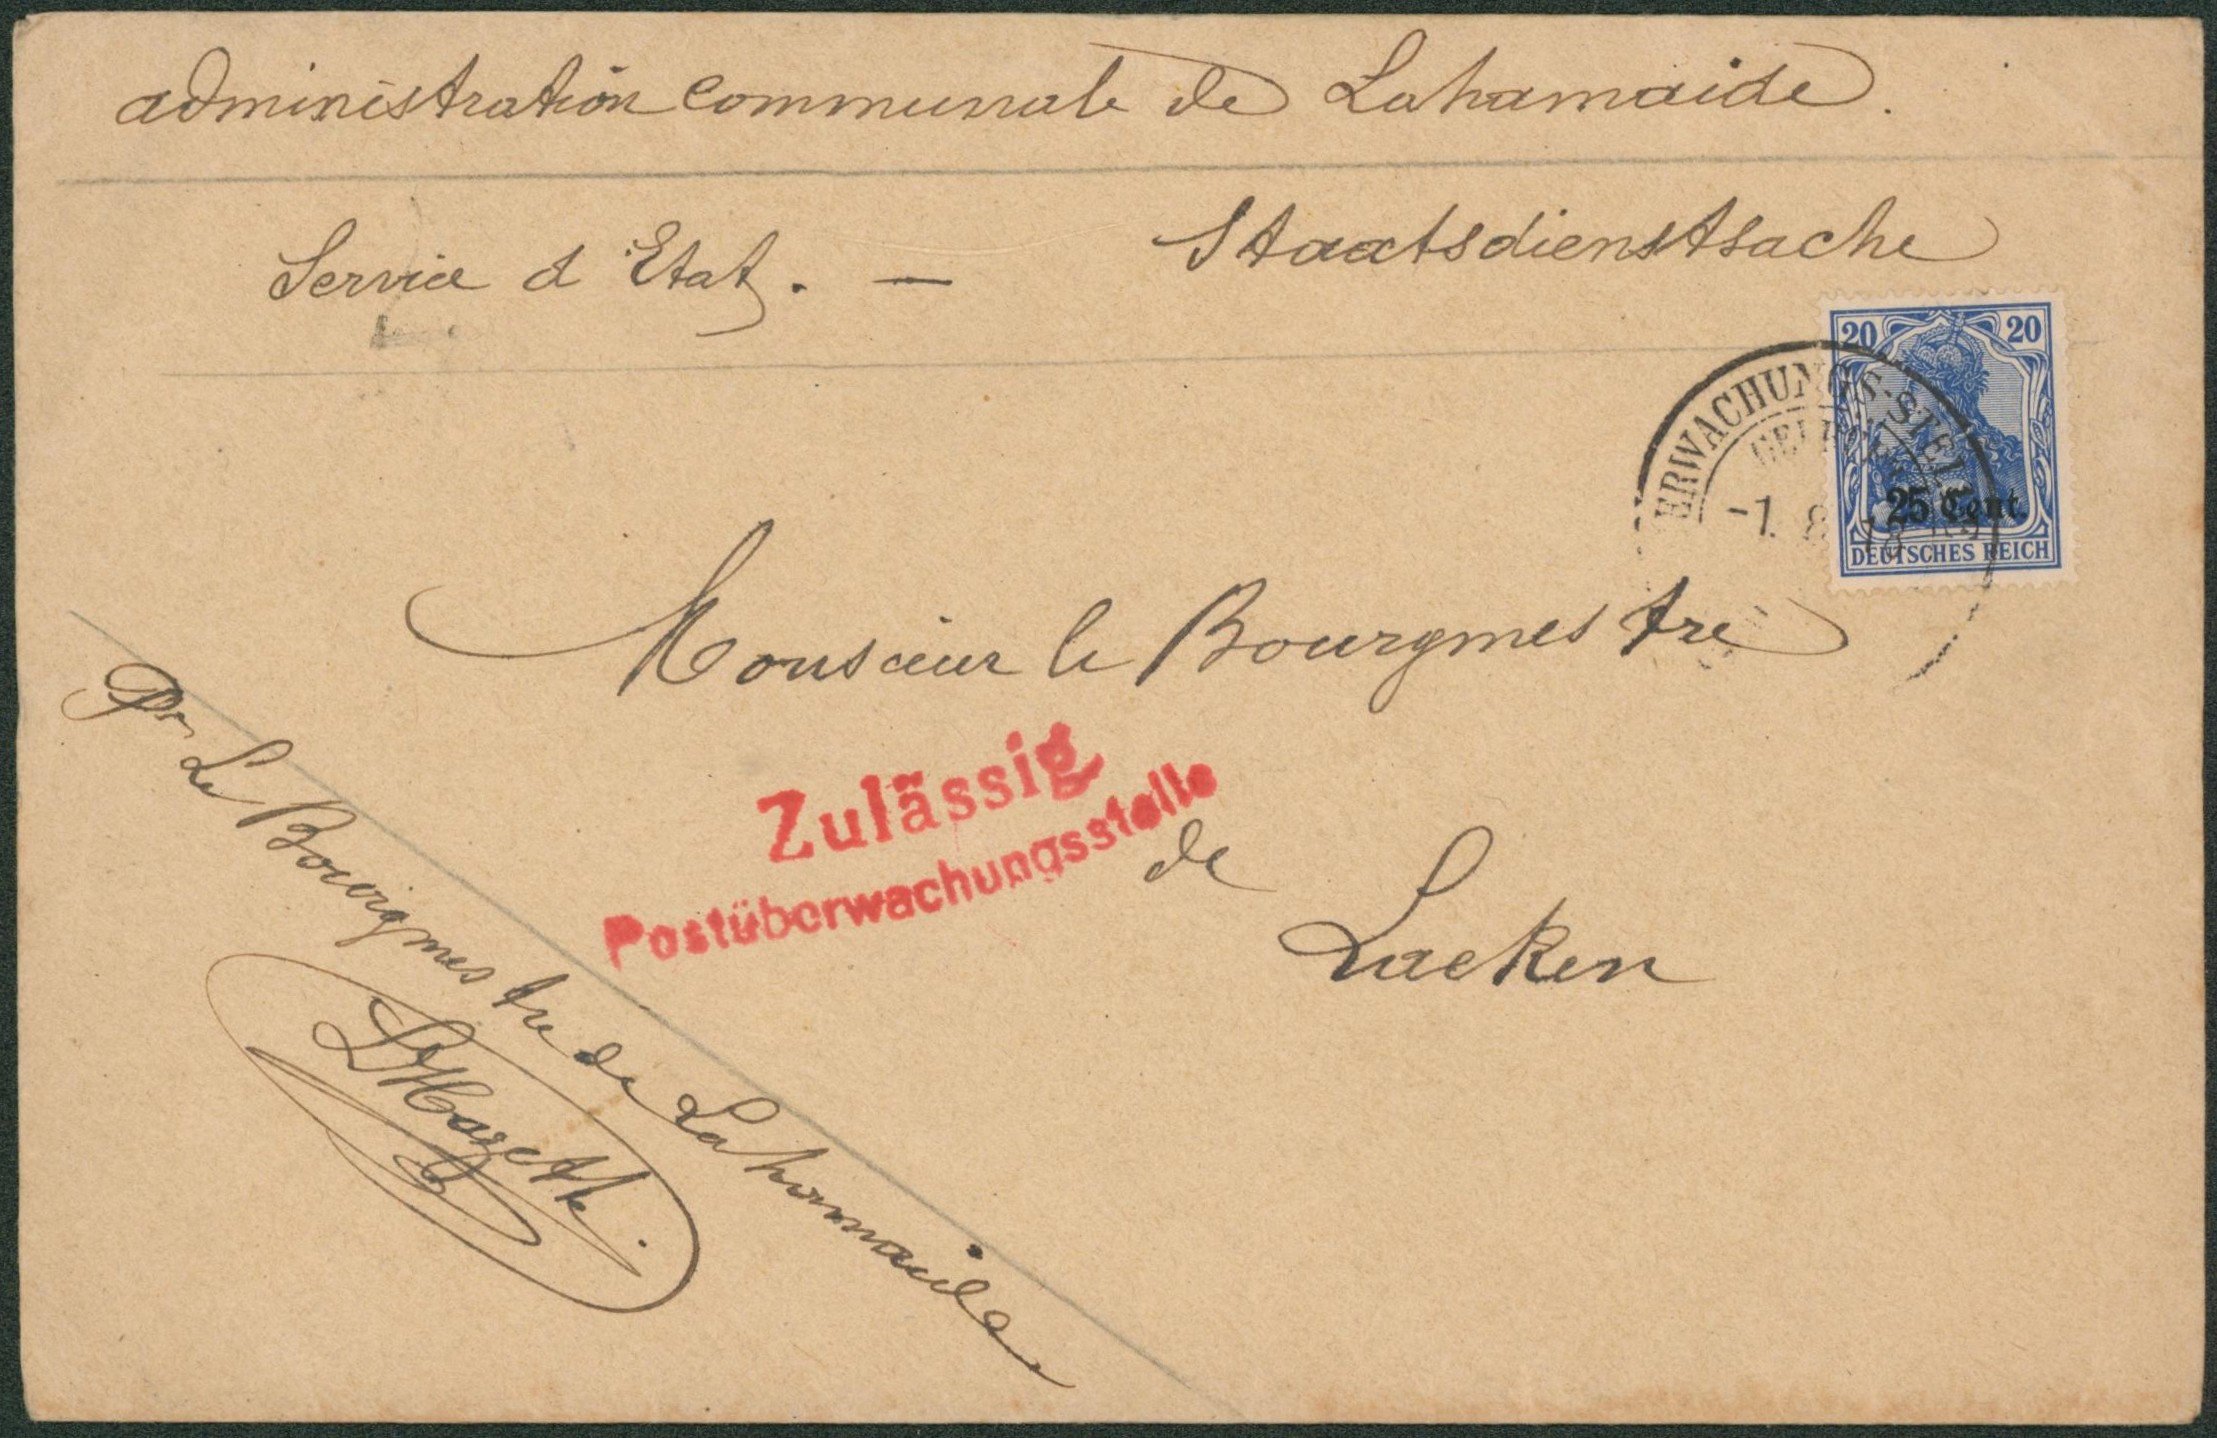 administration communale de Lahamaide.
Service d'Etat. — Staatsdienstsache
20 20
ERWACHUNGS-STELLE
-1. 8 18
25 Cent.
DEUTSCHES REICH
Monsieur le Bourgmestre
Zulässig
Postüberwachungsstelle
de
Laeken
Pr Le Bourgmestre de Lahamaide